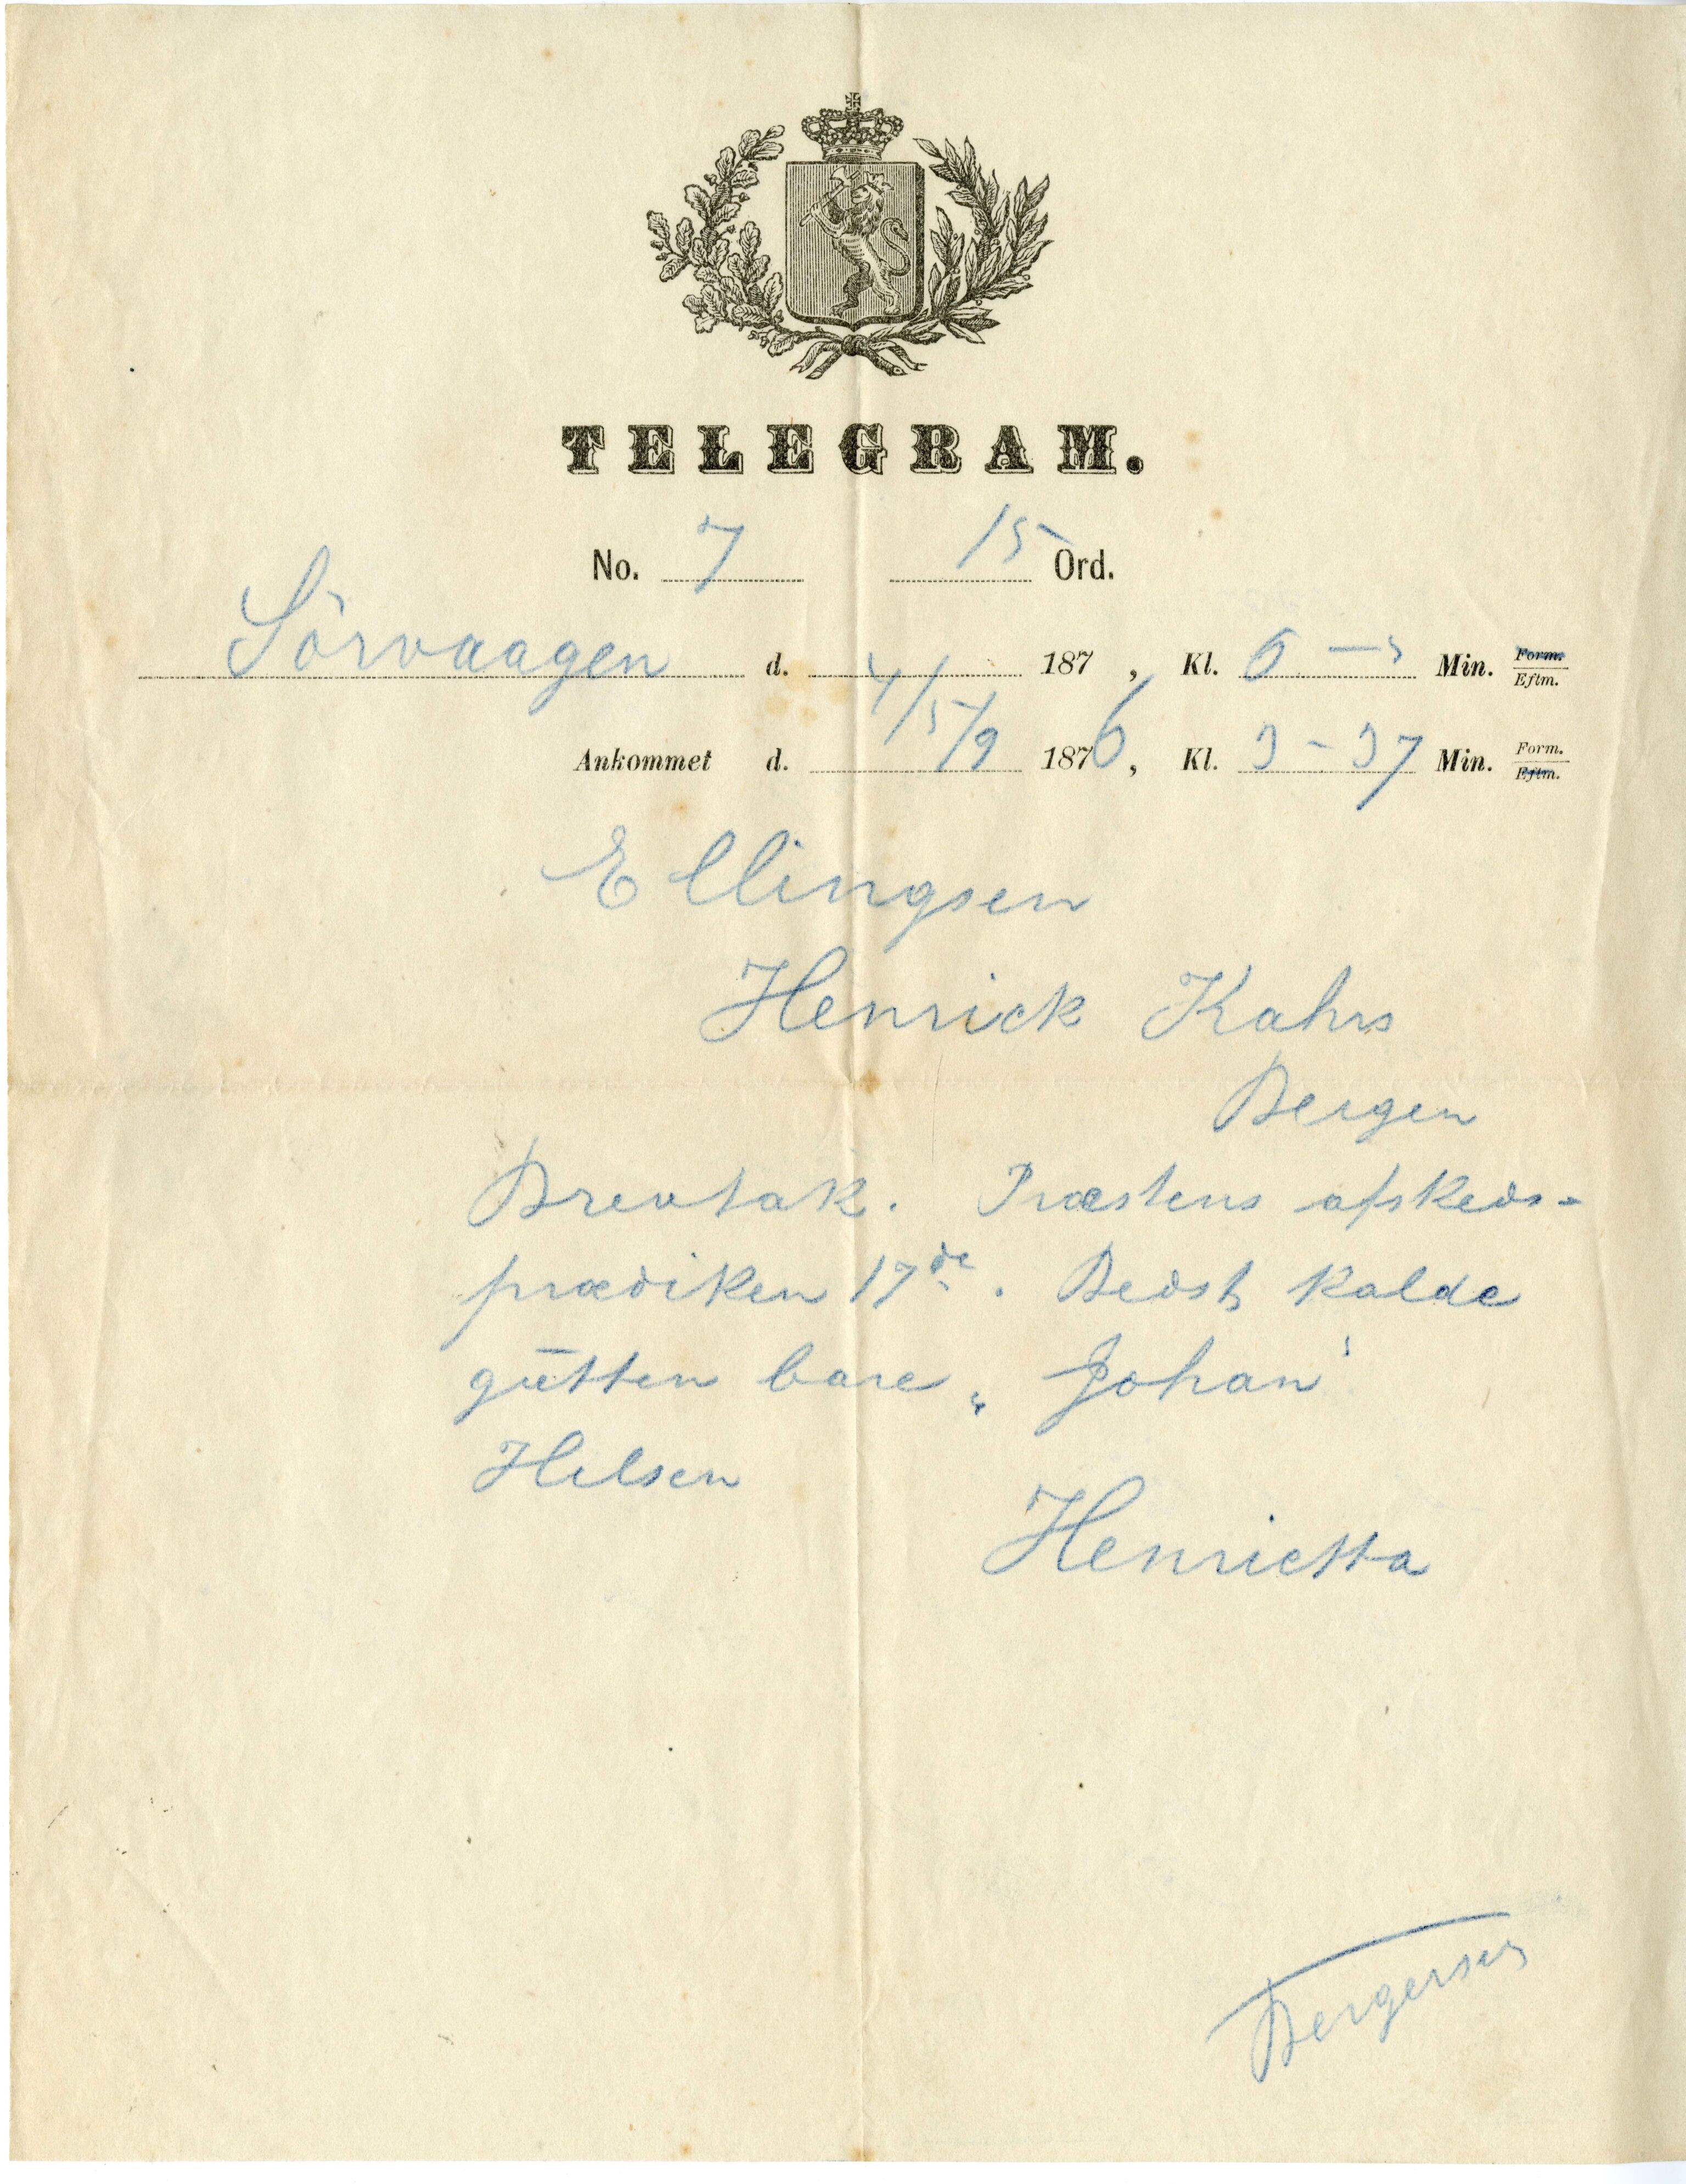 TELEGRAM.
No. 7 15 Ord.
Sörvaagen d. 4/ 187 , Kl. 6 — 5 Min. Form. Eftm.
Ankommet d. 5/9 1876, Kl. 9 - 37 Min. Form. Eftm.
Ellingsen
Henrick Kahrs
Bergen
Brevtak. Præstens afskeds-
prædiken 17de. Bedst kalde
gūtten bare „Johan"
Hilsen
Henrietta
Bergersen